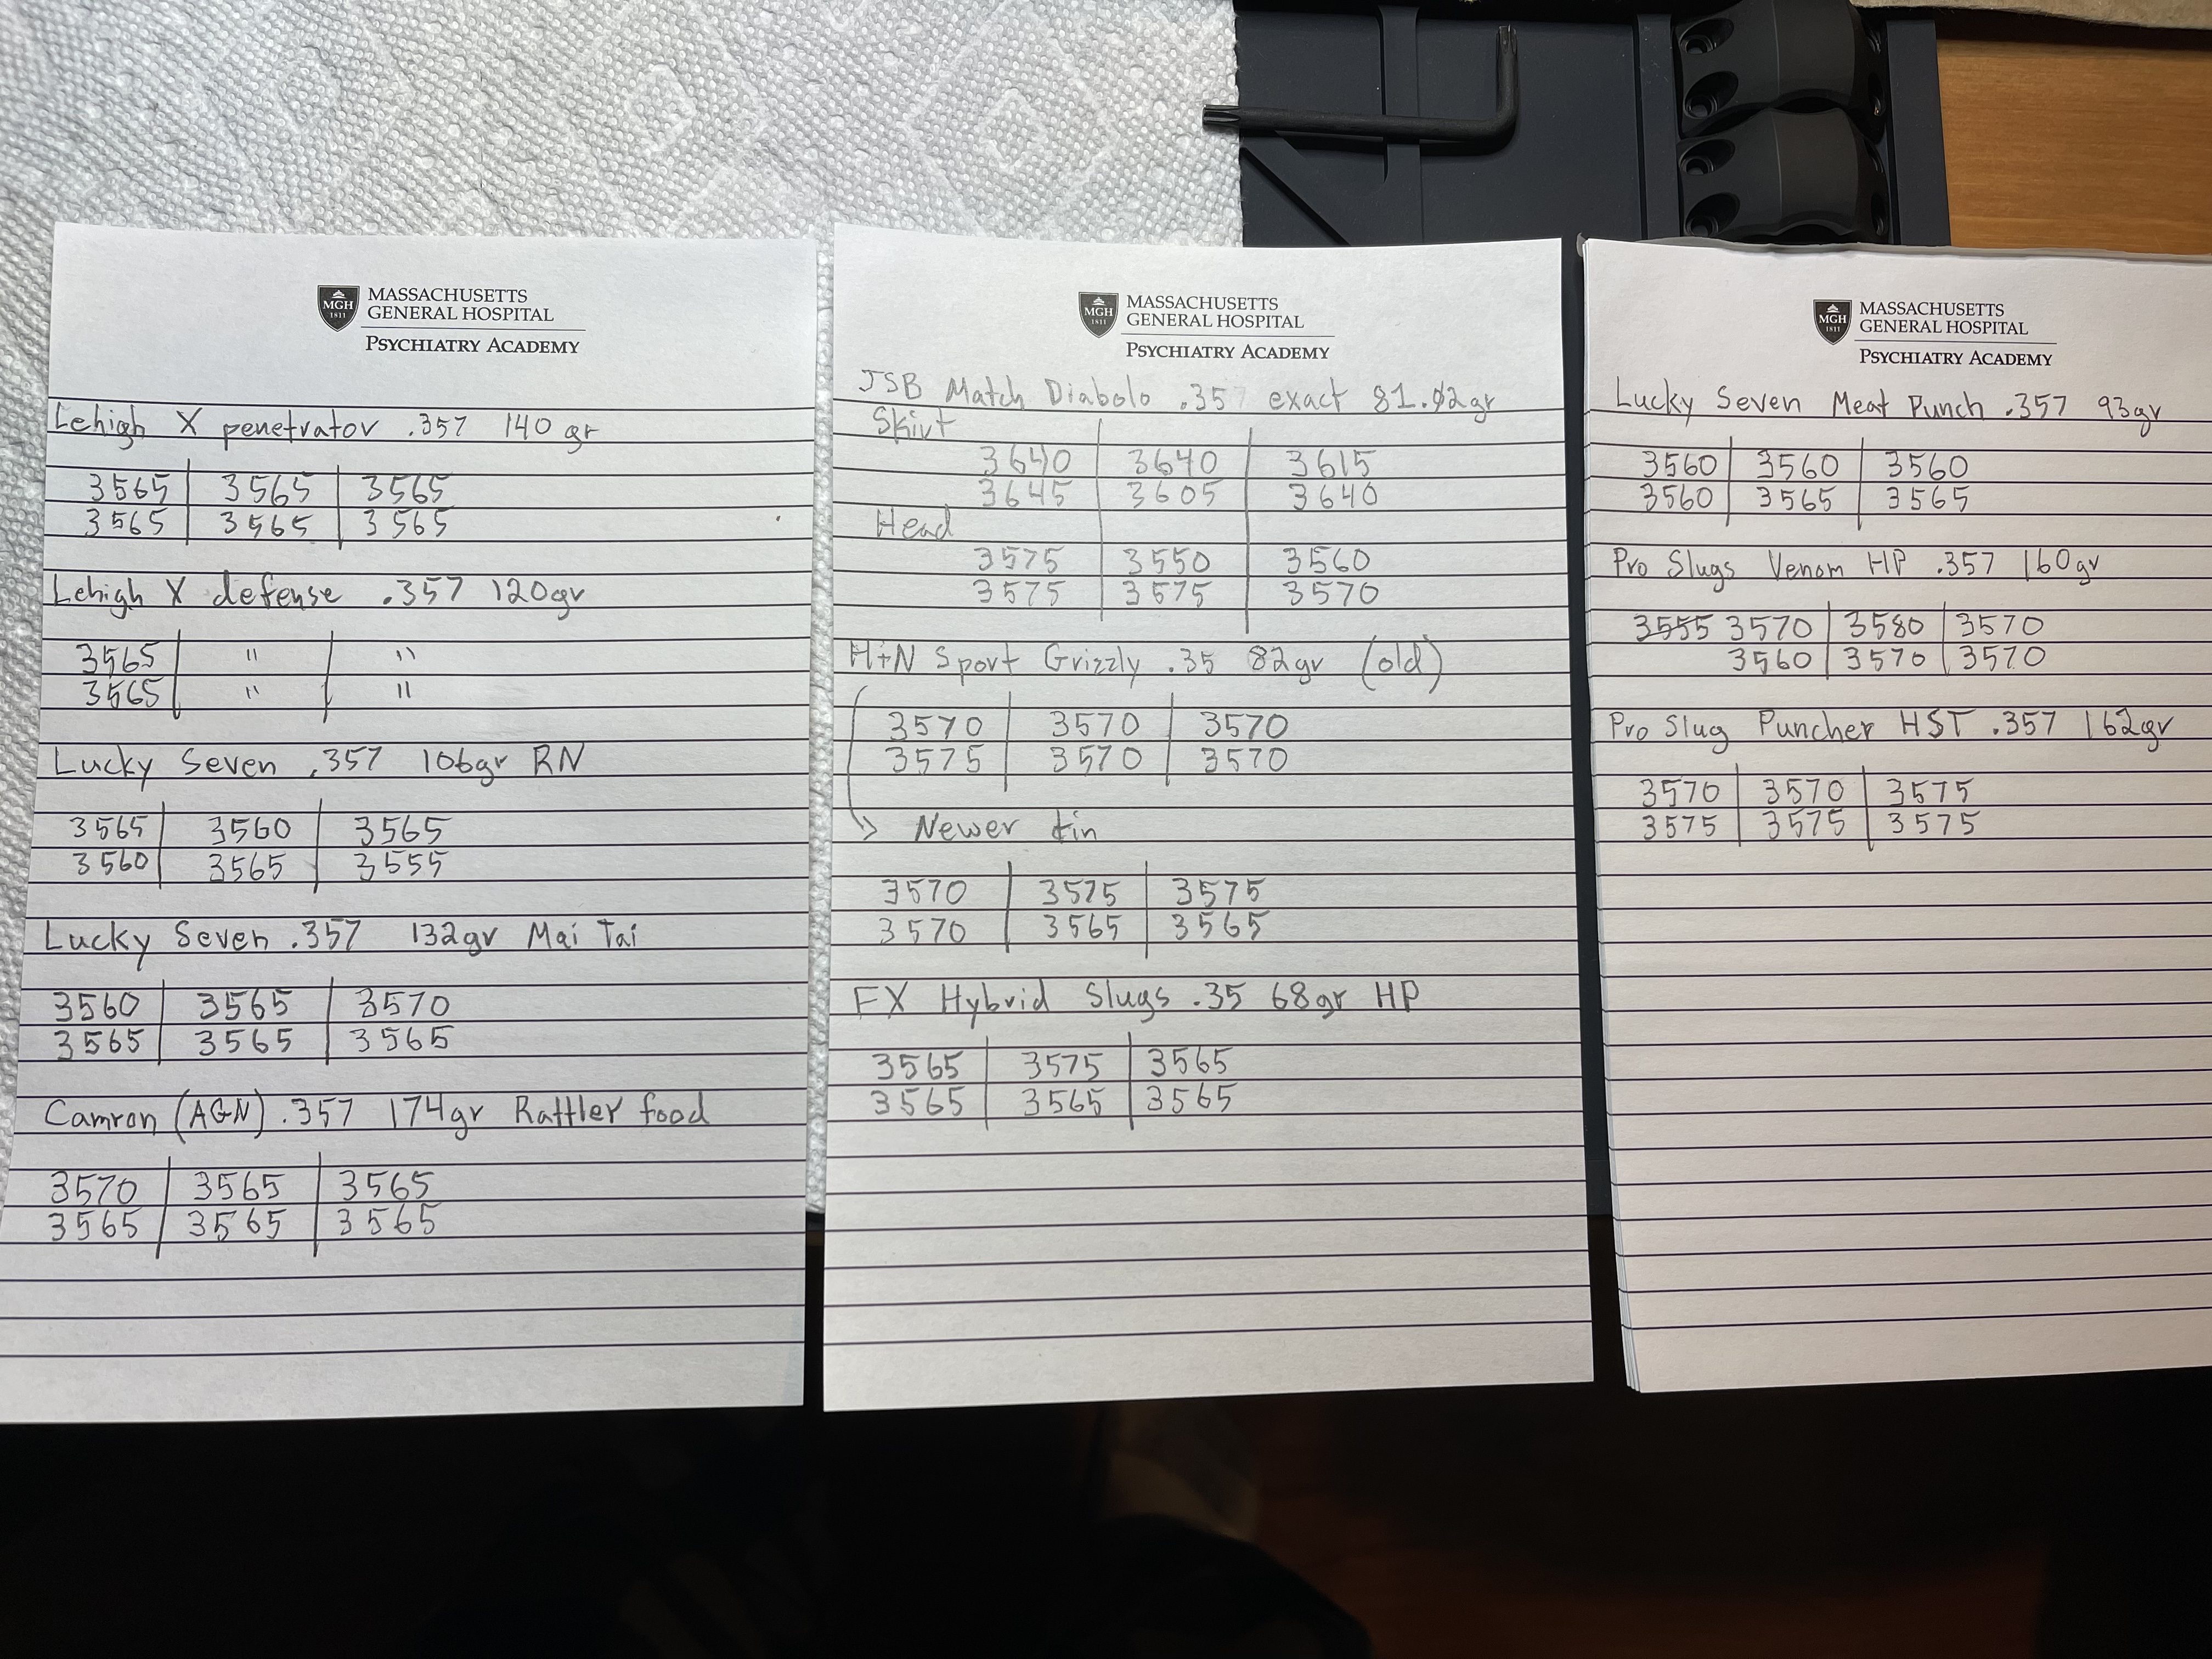 MGH
1811
MASSACHUSETTS
GENERAL HOSPITAL
PSYCHIATRY ACADEMY
Lehigh X penetrator .357 140 gr
3565 3565 3565
3565 3565 3565
Lehigh X defense .357 120gr
3565 " "
3565 " "
Lucky Seven .357 106gr RN
3565 3560 3565
3560 3565 3555
Lucky Seven .357 132gr Mai Tai
3560 3565 3570
3565 3565 3565
Camron (AGN) .357 174gr Rattler food
3570 3565 3565
3565 3565 3565
MGH
1811
MASSACHUSETTS
GENERAL HOSPITAL
PSYCHIATRY ACADEMY
JSB Match Diabolo .357 exact 81.02gr
Skirt
3640 3640 3615
3645 3605 3640
Head
3575 3550 3560
3575 3575 3570
H+N Sport Grizzly .35 82gr (old)
3570 3570 3570
3575 3570 3570
Newer tin
3570 3575 3575
3570 3565 3565
FX Hybrid Slugs .35 68gr HP
3565 3575 3565
3565 3565 3565
MGH
1811
MASSACHUSETTS
GENERAL HOSPITAL
PSYCHIATRY ACADEMY
Lucky Seven Meat Punch .357 93gr
3560 3560 3560
3560 3565 3565
Pro Slugs Venom HP .357 160gr
3555 3570 3580 3570
3560 3570 3570
Pro Slug Puncher HST .357 162gr
3570 3570 3575
3575 3575 3575